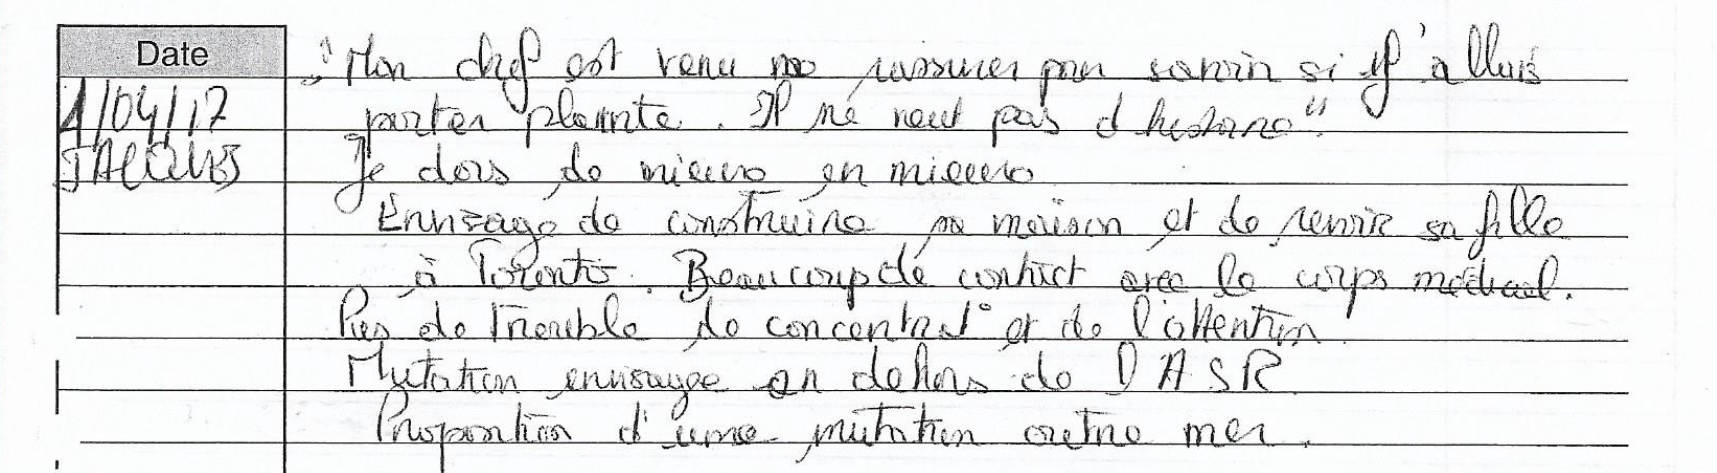 Date
"Mon chef est venu me rassurer pour savoir si j'allais
1/04/17
porter plainte. Il ne veut pas d'histoire".
JACQUES
Je dors de mieux en mieux
Envisage de construire sa maison et de revoir sa fille
à Toronto. Beaucoup de contact avec le corps médical.
Pas de trouble de concentrat° et de l'attention
Mutation envisagée en dehors de l'ASR
Proposition d'une mutation outre mer.